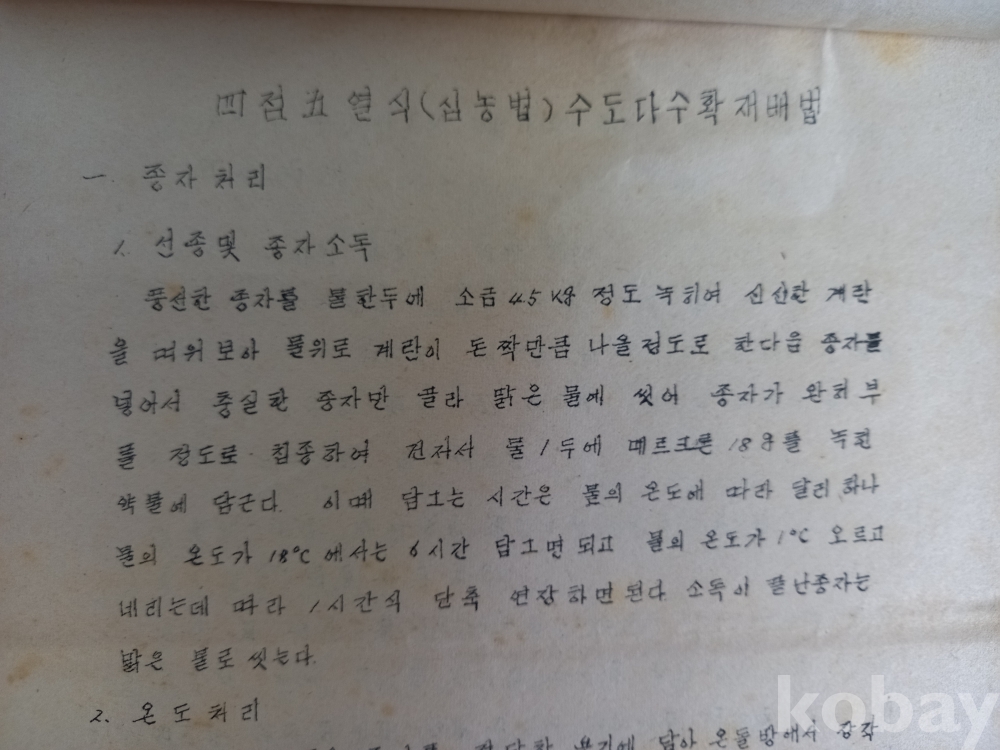 四점五열식(심농법)수도다수확재배법
一. 종자처리
1. 선종및 종자소독
풍선한 종자를 물한두에 소금 4.5 Kg 정도 녹히여 신선한 계란
을 띠워보아 물위로 계란이 돈짝만큼 나올정도로 한다음 종자를
넣어서 충실한 종자만 골라 맑은 물에 씻어 종자가 완허부
풀 정도로 침종하여 건저서 물 1두에 메르크론 18g를 녹힌
약물에 담근다. 이때 담그는 시간은 물의 온도에 따라 달리하나
물의 온도가 18°C에서는 6시간 담그면되고 물의 온도가 1°C 오르고
네리는데 따라 1시간식 단축 연장하면된다. 소독이 끝난종자는
맑은 물로 씻는다.
2. 온도처리
용기에 담아 온돌방에서 강작
kobay